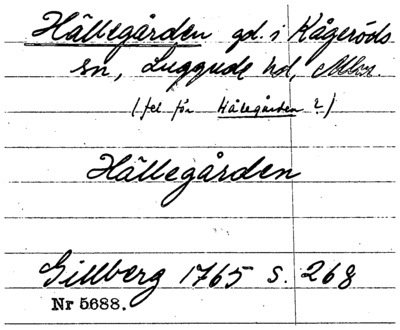 Hällegården gd. i Kågeröds
sn, Luggude hd, Mlm.
(fel för Hålegården ?)
Hällegården
Gillberg 1765 s. 268
Nr 5688.